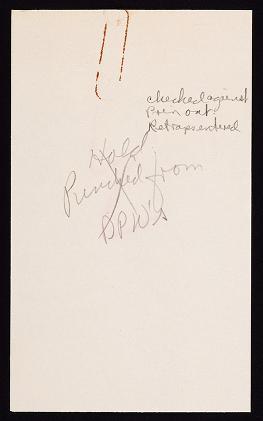 checked against
Prin out
Retraps entered
Hold
Punched from
BPW's